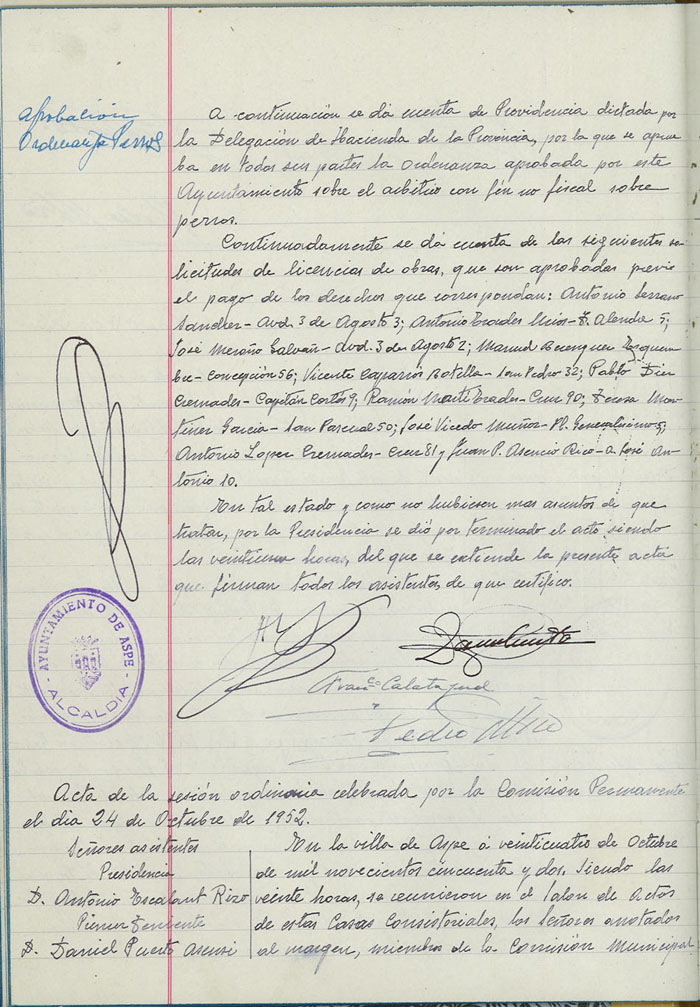 Aprobación
Ordenanza Perros
A continuación se dá cuenta de Providencia dictada por
la Delegación de Hacienda de la Provincia, por la que se aprue
ba en todas sus partes la Ordenanza aprobada por este
Ayuntamiento sobre el arbitrio con fin no fiscal sobre
perros.
Continuadamente se dá cuenta de las siguientes so
licitudes de licencias de obras, que son aprobadas previo
el pago de los derechos que correspondan: Antonio Serrano
Sanchez - Avd. 3 de Agosto 3; Antonio Prades - 5;
José Meroño Galvañ - Avd. 3 de Agosto 2; Manuel Berenguer
- Concepción 56; Vicente Caparrós Botella - San Pedro 32; Pablo Diez
Cremades - Capitán Cortés 9; Ramón Martí Prades - Cruz 90; Teresa Mar
tinez Garcia - San Pascual 50; José Vicedo Muñoz - Pl. Generalísimo 5;
Antonio Lopez Cremades - Cruz 81 y Juan P. Asencio Rico - a José An-
tonio 10.
En tal estado y como no hubiesen mas asuntos de que
tratar, por la Presidencia se dió por terminado el acto siendo
las horas, del que se extiende la presente acta
que firman todos los asistentes, de que certifico.
AYUNTAMIENTO DE ASPE
ALCALDIA
Franco Calatayud
Pedro
Acta de la sesión ordinaria celebrada por la Comisión Permanente
el dia 24 de Octubre de 1952.
Señores asistentes
Presidencia
D. Antonio Escalant Rizo
Primer Teniente
D. Daniel Puerto Asensi
En la villa de Aspe á veinticuatro de Octubre
de mil novecientos cincuenta y dos. Siendo las
veinte horas, se reunieron en el Salon de Actos
de estas Casas Consistoriales, los Señores anotados
al margen, miembros de la Comisión Municipal